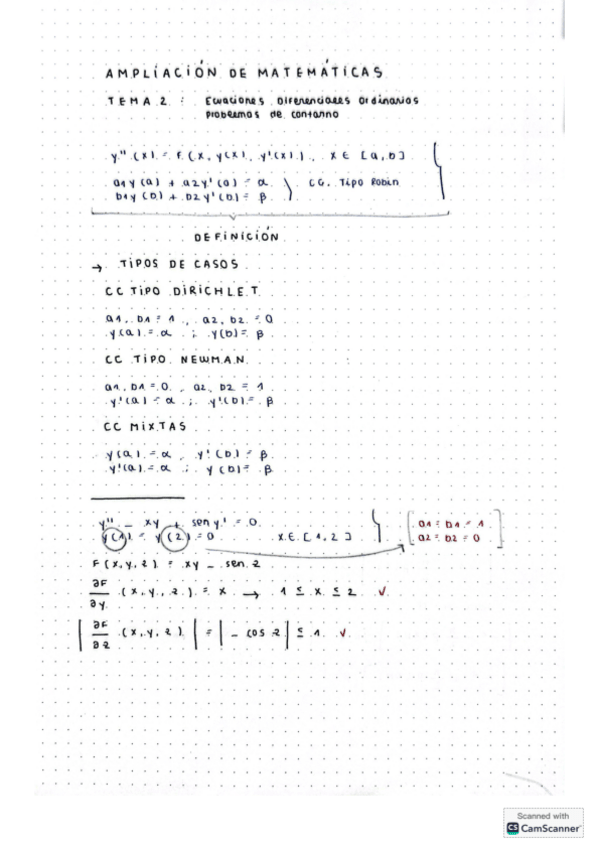 AMPLÍACIÓN DE MATEMÁTICAS
TEMA 2 : Ecuaciones Diferenciales Ordinarias
Problemas de contorno
y''(x) = F(x, y(x), y'(x)), x ∈ [a,b]
a1y(a) + a2y'(a) = α
b1y(b) + b2y'(b) = β
CC. Tipo Robin
DEFINICIÓN
→ TIPOS DE CASOS
CC TIPO DIRICHLET
a1, b1 = 1, a2, b2 = 0
y(a) = α ; y(b) = β
CC TIPO NEWMAN
a1, b1 = 0, a2, b2 = 1
y'(a) = α ; y'(b) = β
CC MIXTAS
y(a) = α, y'(b) = β
y'(a) = α ; y(b) = β
y'' - xy + sen y' = 0
y(1) = y(2) = 0 x ∈ [1,2]
[a1 = b1 = 1
a2 = b2 = 0]
F(x,y,z) = xy - sen z
∂F/∂y (x,y,z) = x → 1 ≤ x ≤ 2 ✓
|∂F/∂z (x,y,z)| = |- cos z| ≤ 1 ✓
Scanned with
CS CamScanner